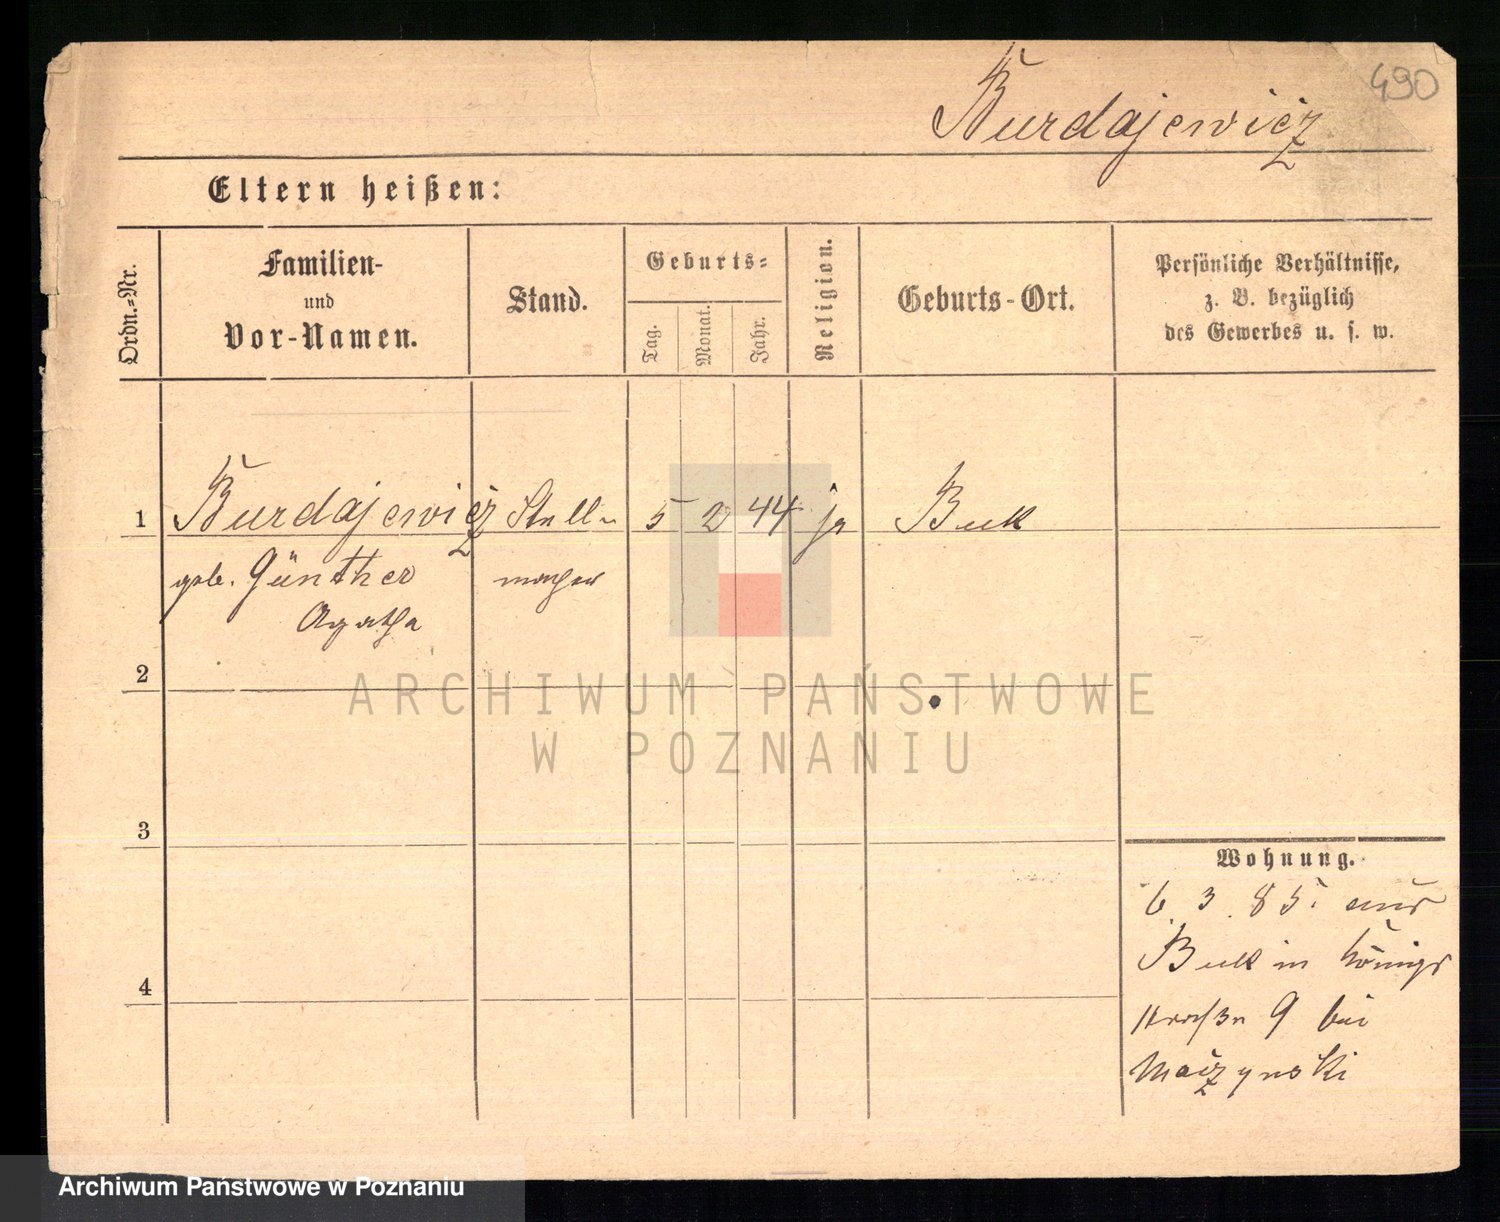 490
Burdajewicz
Eltern heißen:
Ordn.=Nr.
Familien-
und
Vor-Namen.
Stand.
Geburts=
Tag.
Monat.
Jahr.
Religion.
Geburts-Ort.
Persönliche Verhältnisse,
z. B. bezüglich
des Gewerbes u. s. w.
1 Burdajewicz Stell- 5 2 44 Buk
geb. Günther macher
Agatha
2
3
4
Wohnung.
6. 3. 85. aus
Buk in Königs
straße 9 bei
ARCHIWUM PAŃSTWOWE
W POZNANIU
Archiwum Państwowe w Poznaniu